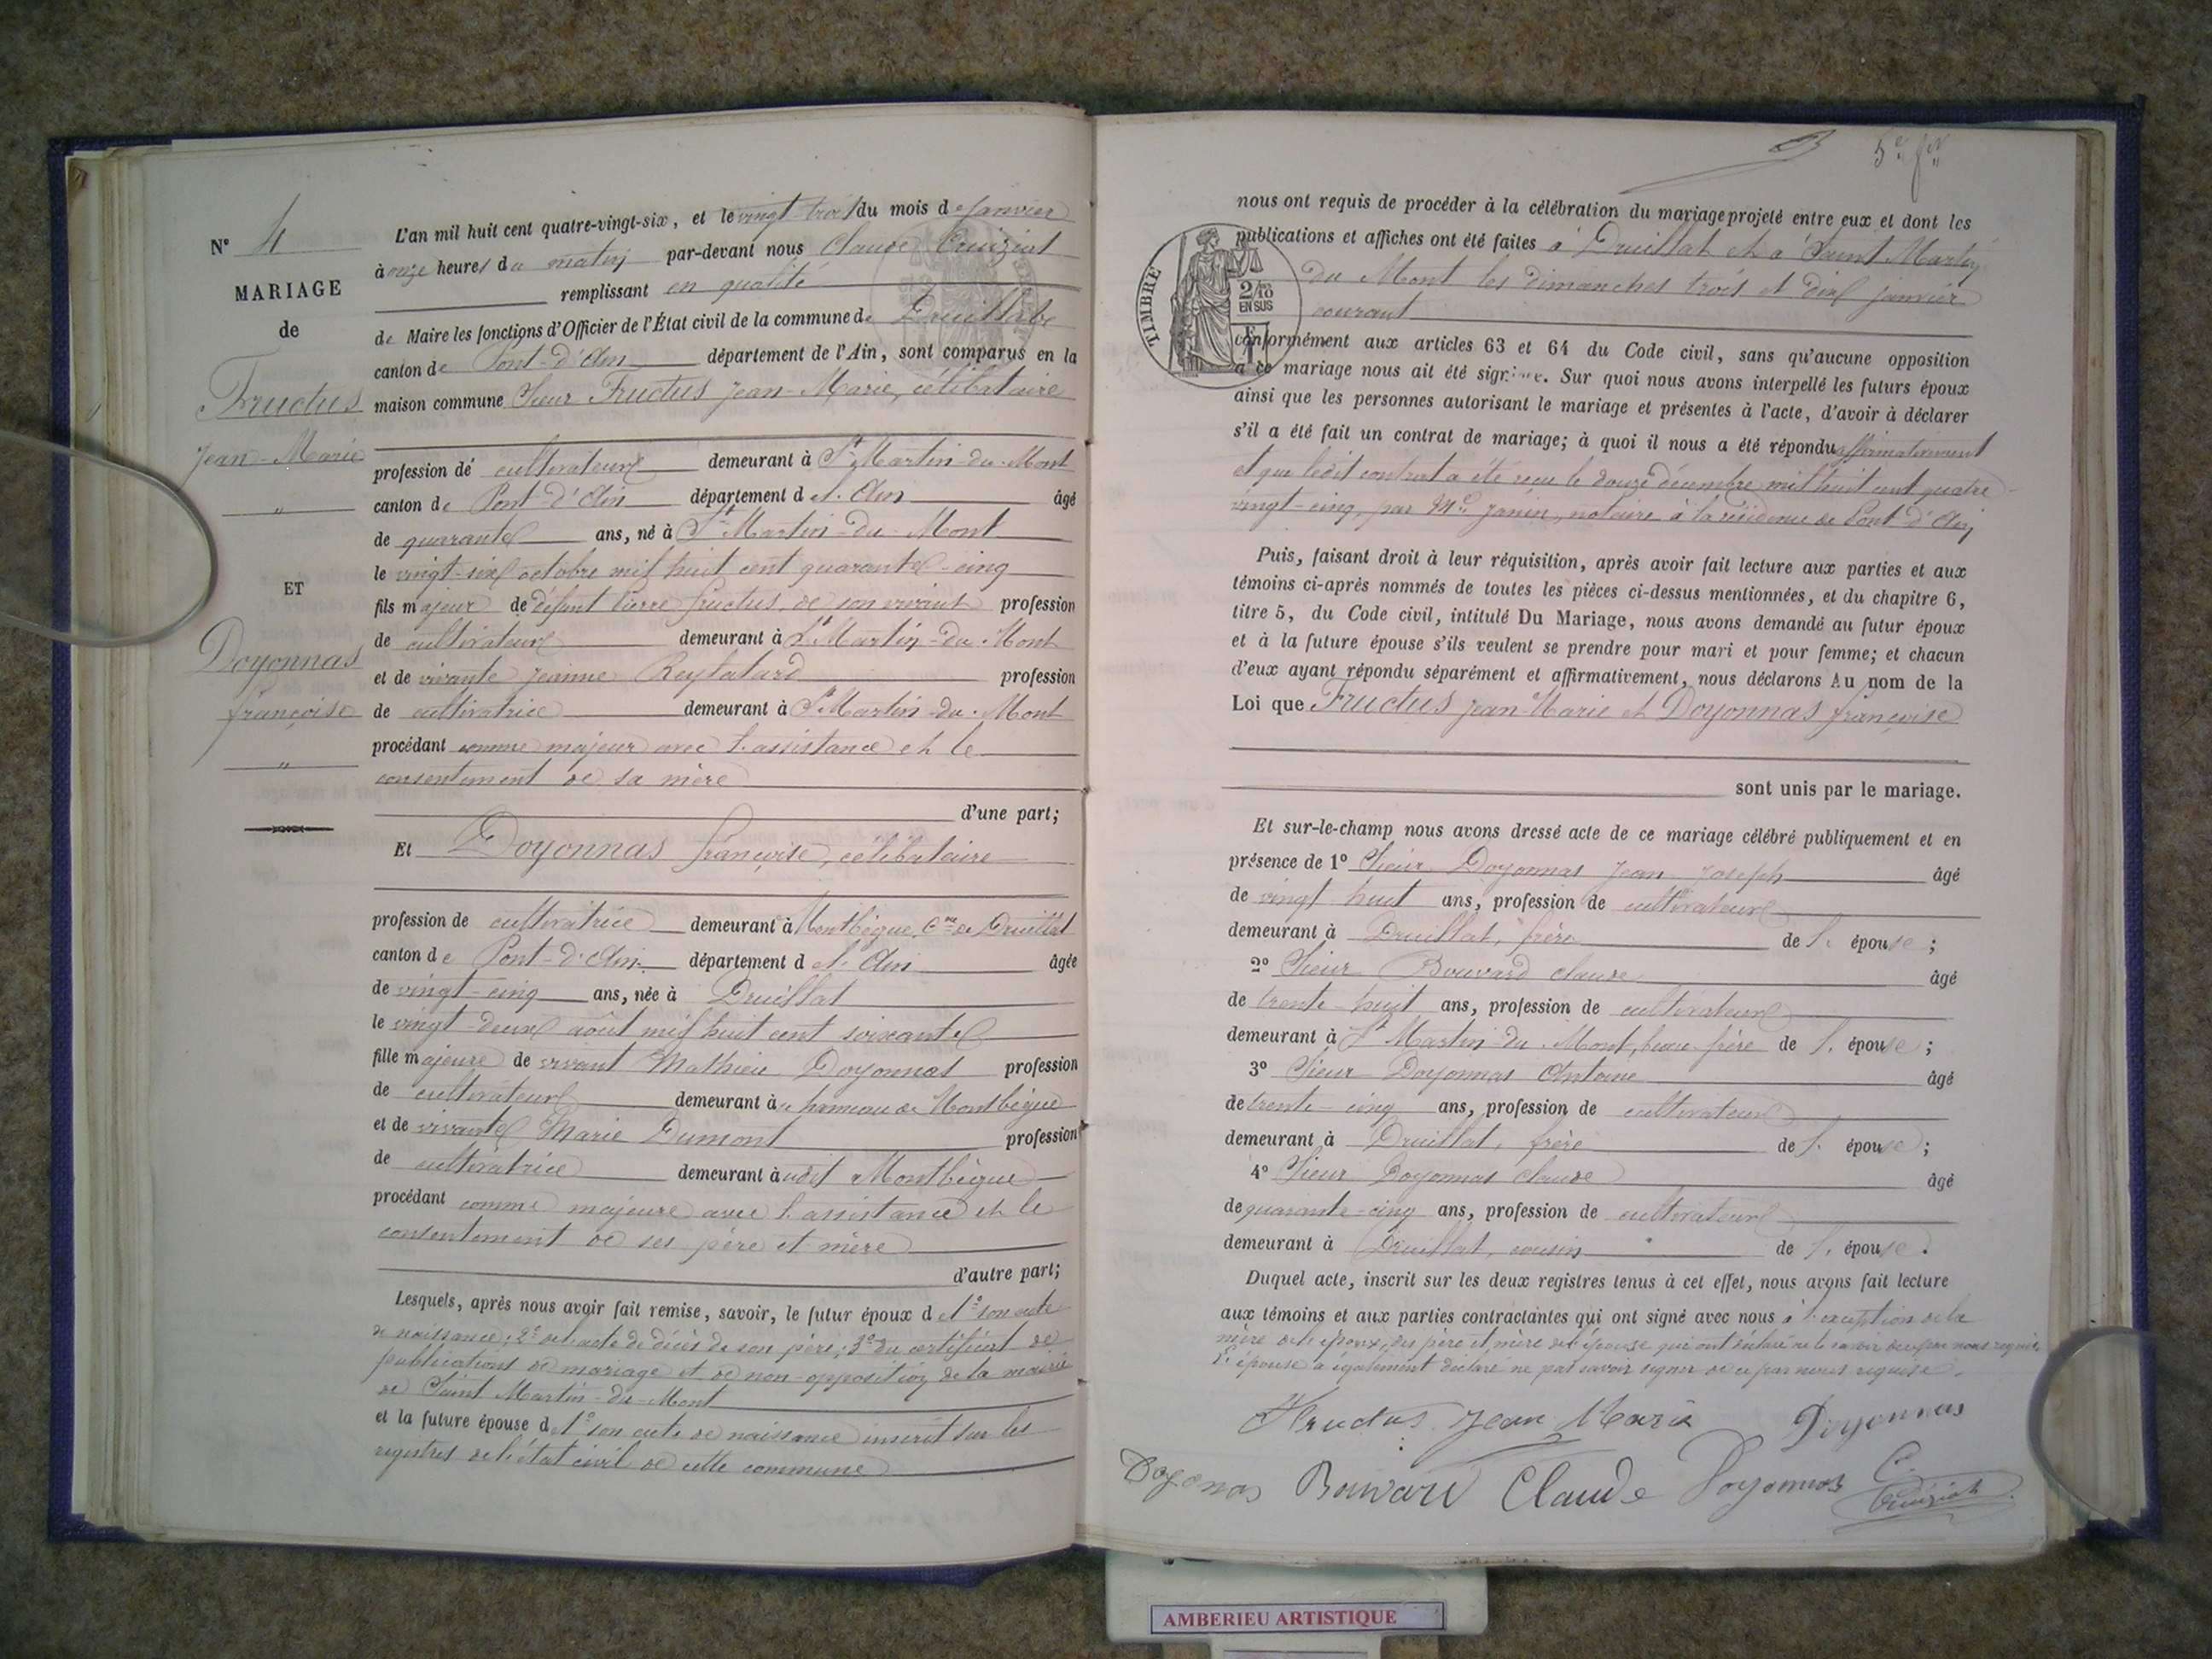 N° 4
MARIAGE
de
Fructus
Jean-Marie
"
ET
Doyonnas
françoise
"
L'an mil huit cent quatre-vingt-six, et le vingt trois du mois de janvier
à onze heures du matin par-devant nous Claude Cuiziat
remplissant en qualité
de Maire les fonctions d'Officier de l'État civil de la commune de Druillat
canton de Pont-d'Ain département de l'Ain, sont comparus en la
maison commune Sieur Fructus Jean-Marie, célibataire
profession de cultivateur demeurant à St Martin-du-Mont
canton de Pont-d'Ain département de l'Ain âgé
de quarante ans, né à St Martin-du-Mont
le vingt-six octobre mil huit cent quarante-cinq
fils majeur de défunt Pierre fructus, de son vivant profession
de cultivateur demeurant à St Martin-du-Mont
et de vivante Jeanne profession
de cultivatrice demeurant à St Martin-du-Mont
procédant comme majeur avec l'assistance et le
consentement de sa mère
d'une part;
Et Doyonnas françoise, célibataire
profession de cultivatrice demeurant à Montbègue, Cne de Druillat
canton de Pont-d'Ain département de l'Ain âgée
de vingt-cinq ans, née à Druillat
le vingt-deux août mil huit cent soixante
fille majeure de vivant Mathieu Doyonnas profession
de cultivateur demeurant au hameau de Montbègue
et de vivante Marie Dumont profession
de cultivatrice demeurant audit Montbègue
procédant comme majeure avec l'assistance et le
consentement de ses père et mère
d'autre part;
Lesquels, après nous avoir fait remise, savoir, le futur époux de 1° son acte
de naissance; 2° de l'acte de décès de son père; 3° du certificat de
publications de mariage et de non-opposition de la mairie
de Saint Martin-du-Mont
et la future épouse de 1° son acte de naissance inscrit sur les
registres de l'état civil de cette commune
5e
nous ont requis de procéder à la célébration du mariage projeté entre eux et dont les
publications et affiches ont été faites à Druillat et à Saint Martin
du Mont les dimanches trois et dix janvier
courant
TIMBRE
2/10
EN SUS
conformément aux articles 63 et 64 du Code civil, sans qu'aucune opposition
à ce mariage nous ait été signifiée. Sur quoi nous avons interpellé les futurs époux
ainsi que les personnes autorisant le mariage et présentes à l'acte, d'avoir à déclarer
s'il a été fait un contrat de mariage; à quoi il nous a été répondu affirmativement
et que ledit contrat a été reçu le douze décembre mil huit cent quatre-
vingt-cinq, par Me Janin, notaire à la résidence de Pont-d'Ain
Puis, faisant droit à leur réquisition, après avoir fait lecture aux parties et aux
témoins ci-après nommés de toutes les pièces ci-dessus mentionnées, et du chapitre 6,
titre 5, du Code civil, intitulé Du Mariage, nous avons demandé au futur époux
et à la future épouse s'ils veulent se prendre pour mari et pour femme; et chacun
d'eux ayant répondu séparément et affirmativement, nous déclarons Au nom de la
Loi que Fructus Jean-Marie et Doyonnas françoise
sont unis par le mariage.
Et sur-le-champ nous avons dressé acte de ce mariage célébré publiquement et en
présence de 1° Sieur Doyonnas Jean Joseph âgé
de vingt huit ans, profession de cultivateur
demeurant à Druillat, frère de l'épouse;
2° Sieur Bouvard Claude âgé
de trente-huit ans, profession de cultivateur
demeurant à St Martin-du-Mont, beau frère de l'épouse;
3° Sieur Doyonnas Antoine âgé
de trente-cinq ans, profession de cultivateur
demeurant à Druillat, frère de l'épouse;
4° Sieur Doyonnas Claude âgé
de quarante-cinq ans, profession de cultivateur
demeurant à Druillat, cousin de l'épouse.
Duquel acte, inscrit sur les deux registres tenus à cet effet, nous avons fait lecture
aux témoins et aux parties contractantes qui ont signé avec nous à l'exception de la
mère de l'époux, des père et mère de l'épouse qui ont déclaré ne le savoir de ce par nous requis
L'épouse a également déclaré ne pas savoir signer de ce par nous requise.
Fructus Jean Marie Doyonnas
Doyonas Bouvard Claude Doyonnas C. Cuiziat
AMBERIEU ARTISTIQUE